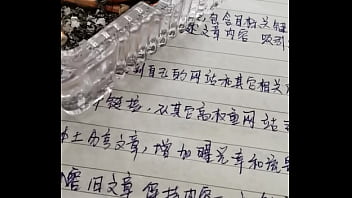 包含目标关键
文章内容 吸引
到自己的网站和其它相关
链接,从其它高权重网站
上分享文章,增加曝光率和流量
旧文章 保持内容